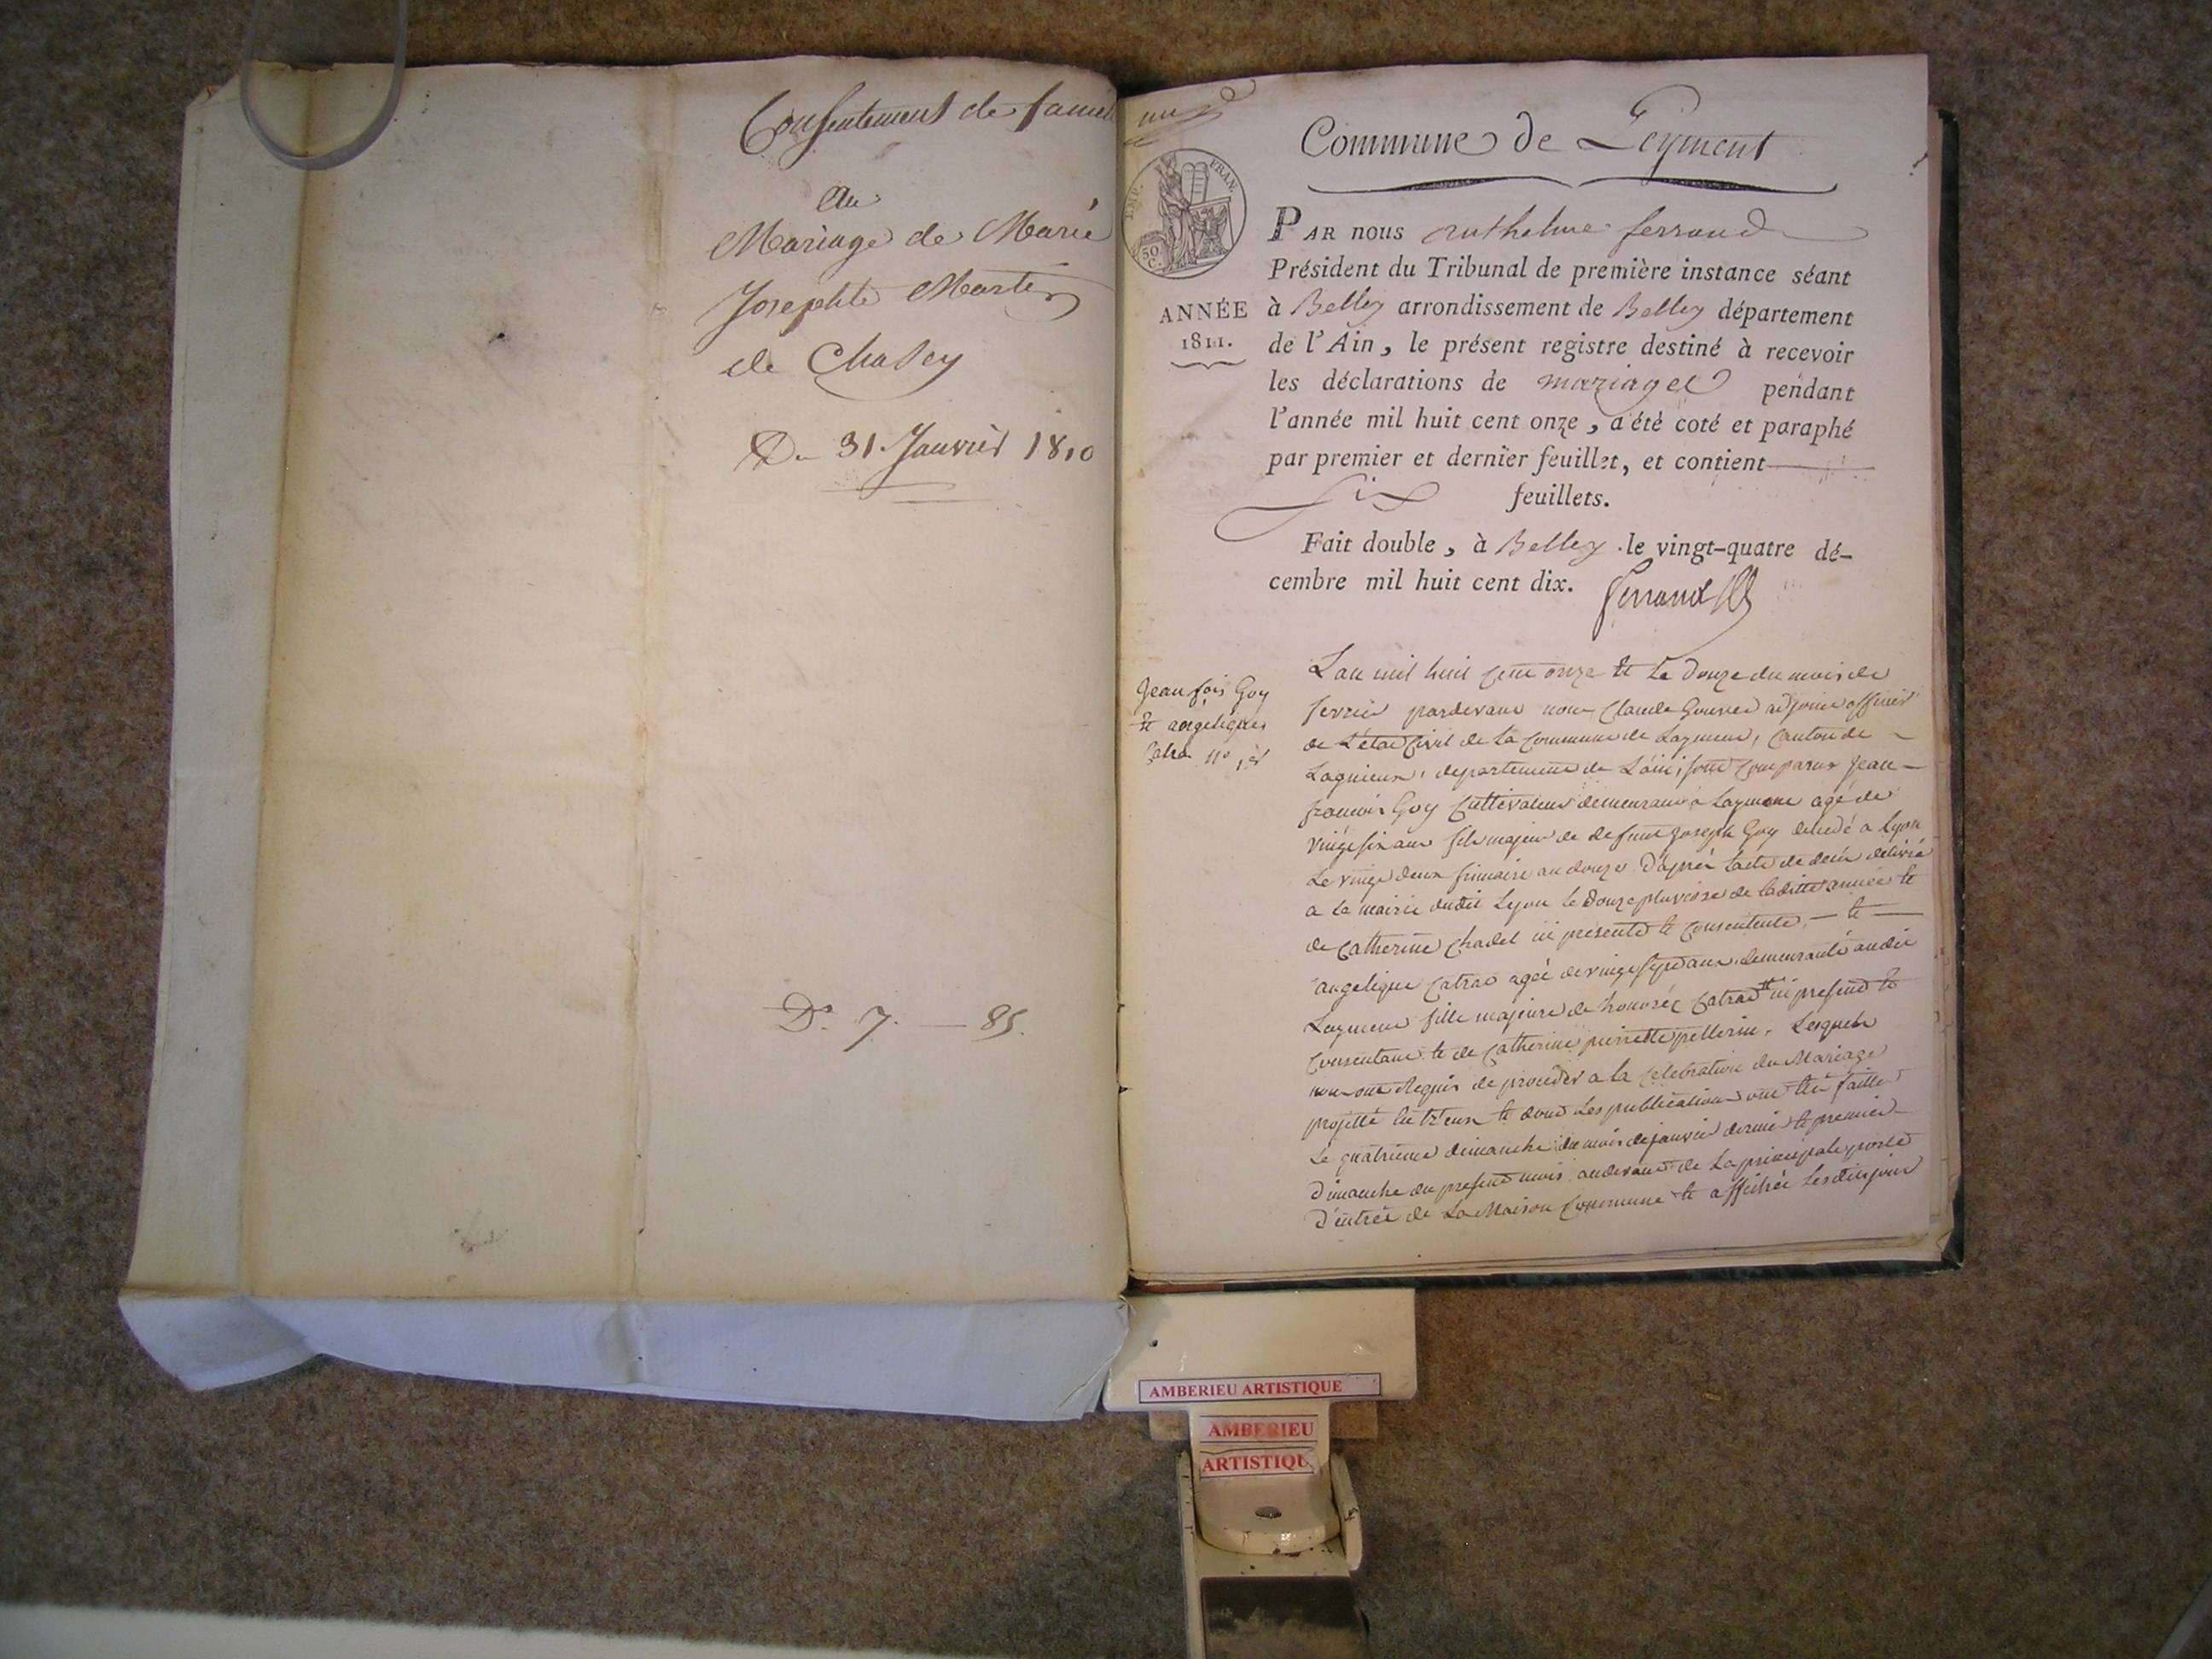 Consentement de famil
Au
Mariage de Marie
Josephte Martin
de Chasey
Du 31. Janvier 1810
Dt. 7. — 85.
EMP. FRAN.
50 C.
Commune de Leyment
PAR nous anthelme ferrand
Président du Tribunal de première instance séant
ANNÉE
1811.
à Belley arrondissement de Belley département
de l'Ain, le présent registre destiné à recevoir
les déclarations de mariages pendant
l'année mil huit cent onze, a été coté et paraphé
par premier et dernier feuillet, et contient
six feuillets.
Fait double, à Belley le vingt-quatre dé-
cembre mil huit cent dix. ferrand
Jean fçois Goy
et angelique
Catra no 1er
L'an mil huit cent onze et le douze du mois de
fevrier pardevant nous Claude Gouvet adjoint officier
de L'état Civil de la Commune de Layment, canton de
Lagnieux, departement de L'ain, sont comparus Jean-
francois Goy cultivateur demeurant a Layment agé de
vingt six ans fils majeur de defunt Joseph Goy decedé a Lyon
Le vingt deux frimaire an douze d'après l'acte de decès delivré
a la mairie dudit Lyon le douze pluviose de laditte année et
de Catherine Chadel ici presente et consentente, — et —
angelique Catras agée de vingt sept ans, demeurante audit
Layment fille majeure de honoréé Catras ici present et
consentant et de Catherine pierrette pellerin, Lesquels
nous ont requis de proceder a la celebration du Mariage
projetté entr'eux et dont les publications ont été faittes
Le quatrieme dimanche du mois de janvier dernier et premier
Dimanche du present mois audevant de la principale porte
D'entrée de La Maison Commune et affichée Lesdits jours
AMBERIEU ARTISTIQUE
AMBERIEU
ARTISTIQU